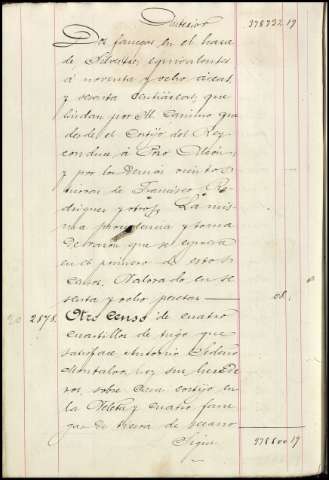 Anterior 378732.19
Dos fanegas en el haza
de Silvestre, equivalentes
á noventa y ocho áreas,
y sesenta centiáreas, que
lindan por M. Camino que
desde el Cortijo del Rey
conduce á Pozo
y por los demás vientos
tierras de Francisco Ro
driguez y otros. La mis
ma procedencia y toma
de razon que se espresa
en el primero de estos
censos. Valorado en se
senta y ocho pesetas 68.
2878. Otro censo de cuatro
cuartillos de trigo que
satisface Antonio Cedano
Montalvo, y sus herede
ros, sobre Casa cortijo en
la Veleta y cuatro fane
gas de tierra de secano
Sigue 378800.19